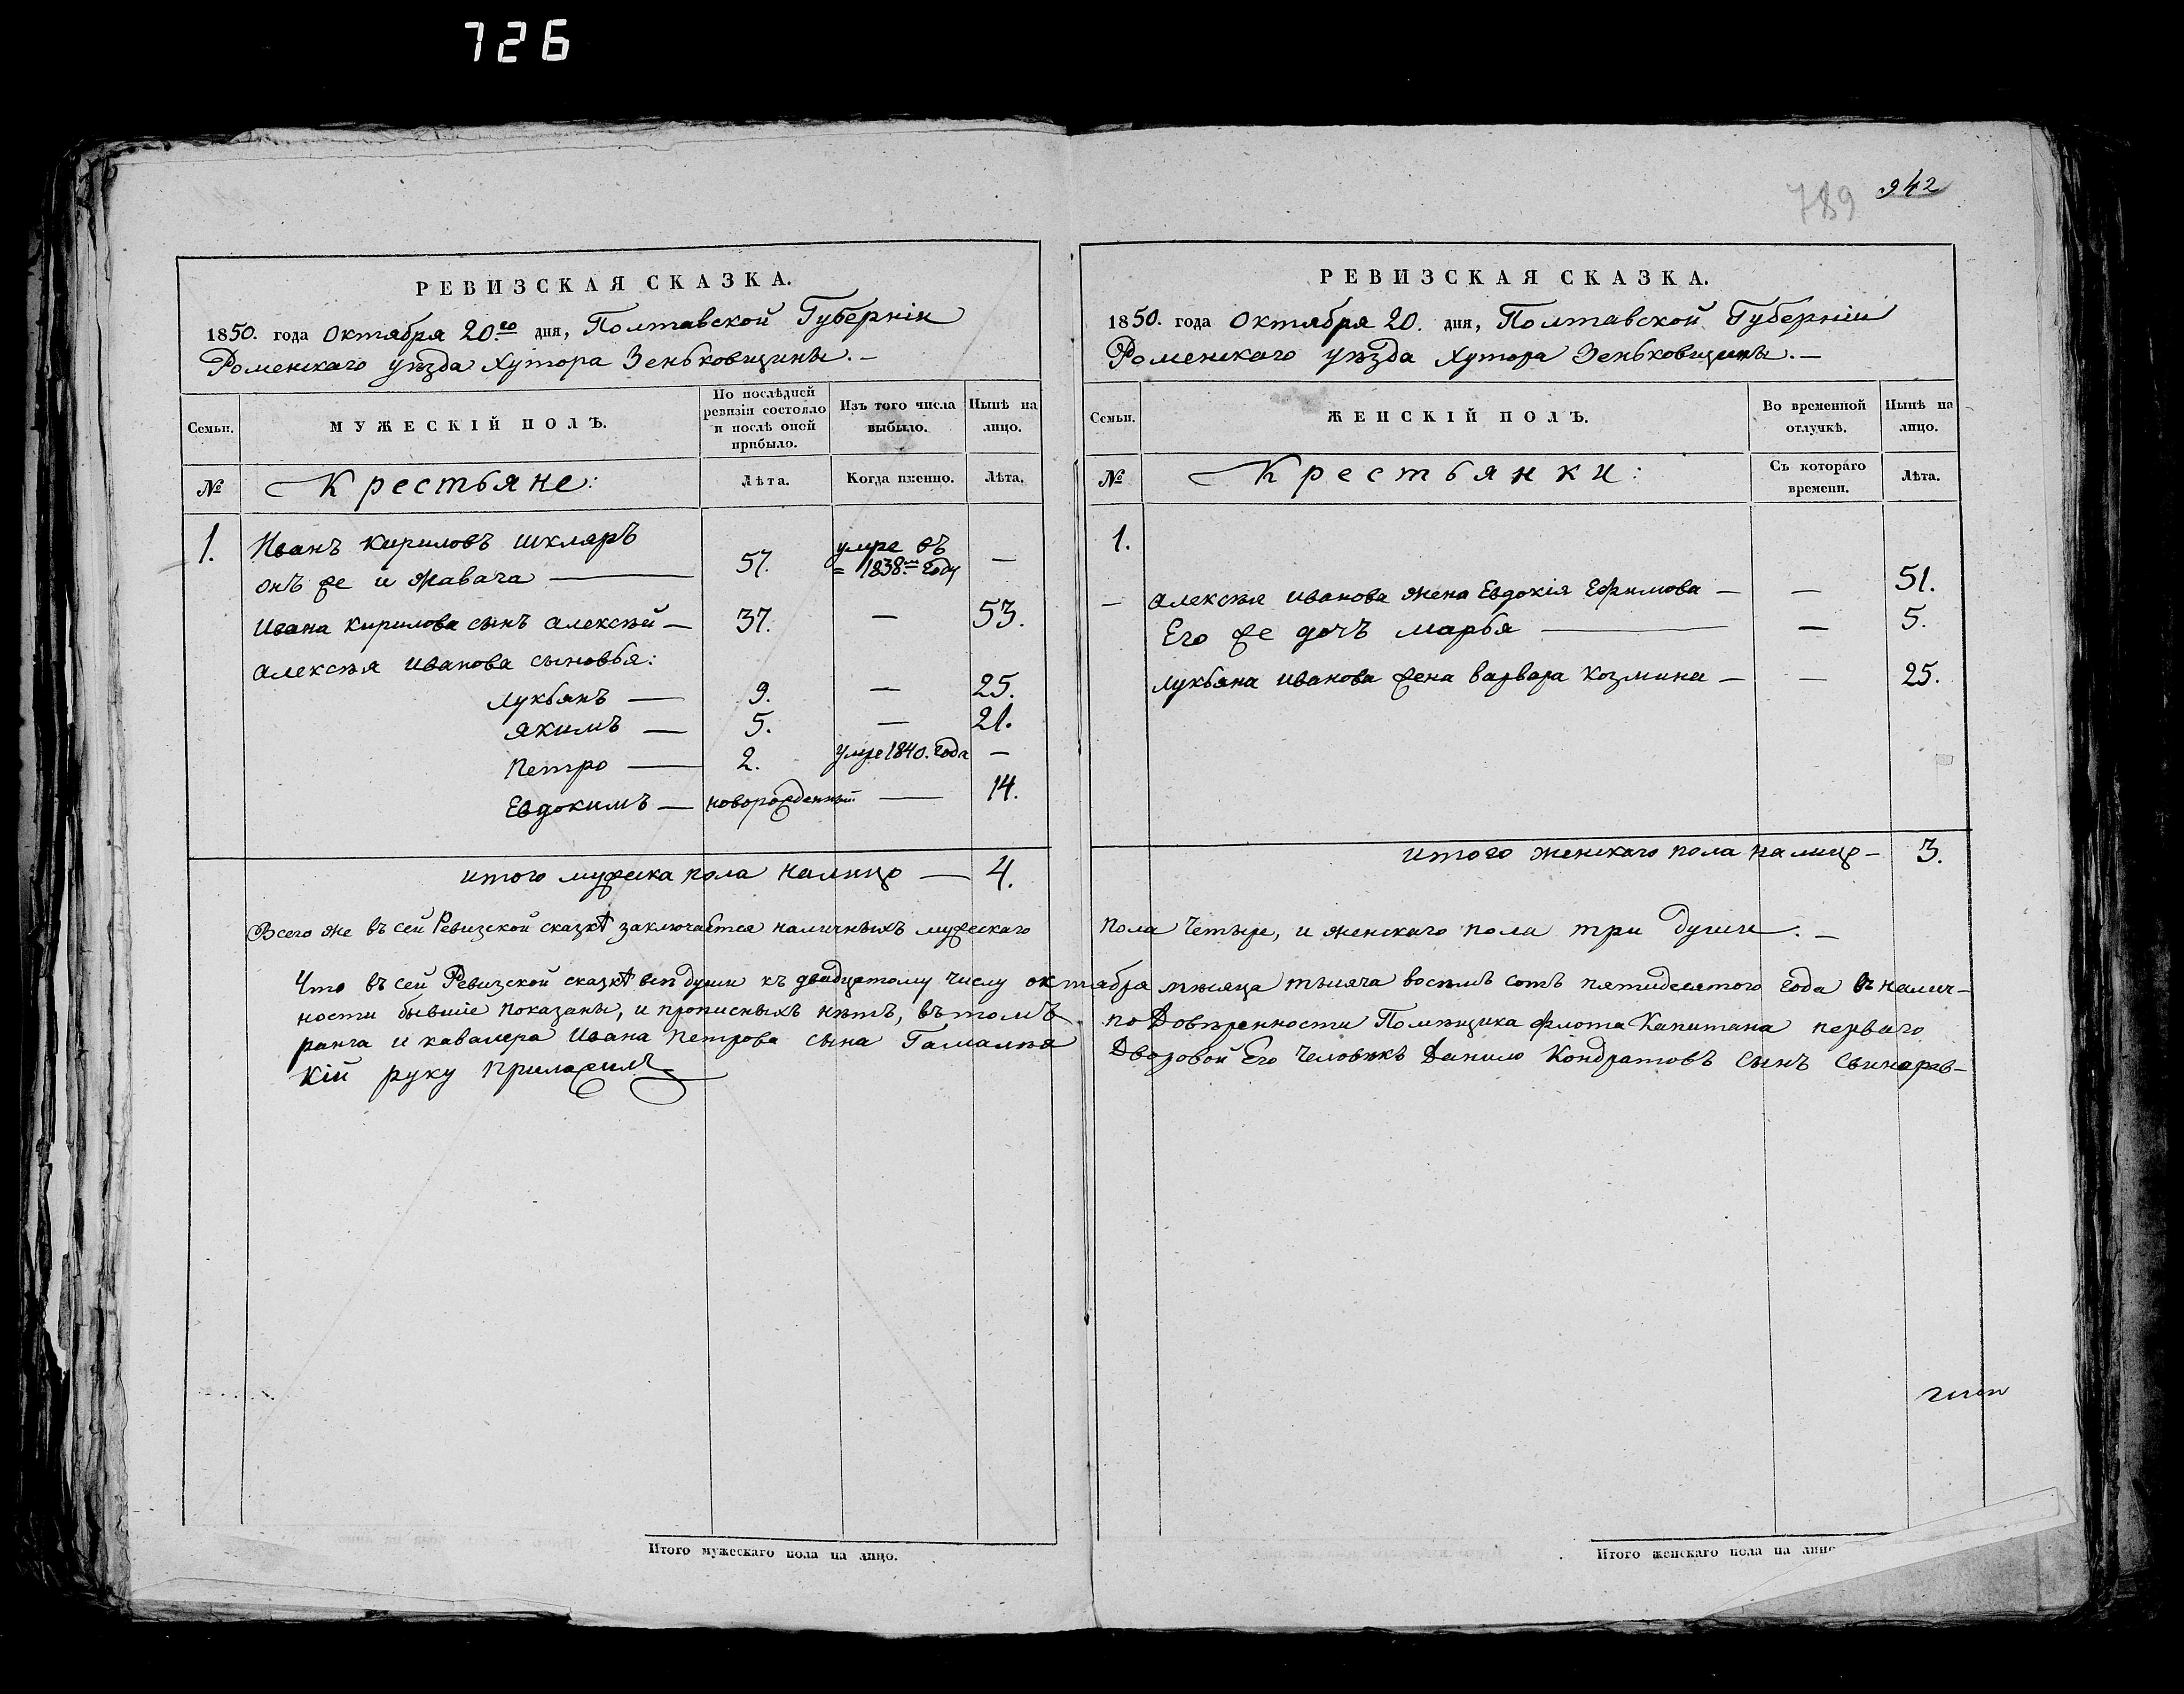 726
789 942
РЕВИЗСКАЯ СКАЗКА.
1850. года Октября 20.го дня, Полтавской Губерніи
Роменскаго уѣзда Хутора Зеньковщины.
Семьи. МУЖЕСКІЙ ПОЛЪ. По послѣдней ревизіи состояло и послѣ оной прибыло. Изъ того числа выбыло. Нынѣ на лицо.
№ Крестьяне: Лѣта. Когда именно. Лѣта.
1. Иванъ Кириловъ Шкляръ
онъ же и Жавача — 57. умре въ 1838.мъ Году —
Ивана Кирилова сынъ Алексѣй — 37. — 53.
Алексѣя Иванова сыновья:
Лукьянъ — 9. — 25.
Якимъ — 5. — 21.
Петро — 2. умре 1840. Года —
Евдокимъ — новорожденный — 14.
итого мужеска пола налицо — 4.
РЕВИЗСКАЯ СКАЗКА.
1850. года Октября 20. дня, Полтавской Губерніи
Роменскаго уѣзда Хутора Зеньковщины.
Семьи. ЖЕНСКІЙ ПОЛЪ. Во временной отлучкѣ. Нынѣ на лицо.
№ Крестьянки: Съ котораго времени. Лѣта.
1.
— Алексѣя Иванова жена Евдокія Ефимова — — 51.
Его же дочъ Марья — — 5.
Лукьяна Иванова жена Варвара Козмина — — 25.
итого женскаго пола налицо — 3.
Всего же въ сей Ревизской сказкѣ заключается наличныхъ мужескаго пола Четыре, и женскаго пола три души.
Что въ сей Ревизской сказкѣ всѣ души къ двадцатому числу октября мѣсяца тысяча восемъ сотъ пятидесятого года въ налич-
ности бывшіе показаны, и прописныхъ нѣтъ, въ томъ по Довѣренности Помѣщика флота Капитана перваго
ранга и кавалера Ивана Петрова сына Гамалѣя Дворовой Его Человѣкъ Данило Кондратовъ сынъ Свинарев-
кій руку приложилъ
Итого мужескаго пола на лицо.
Итого женскаго пола на лицо